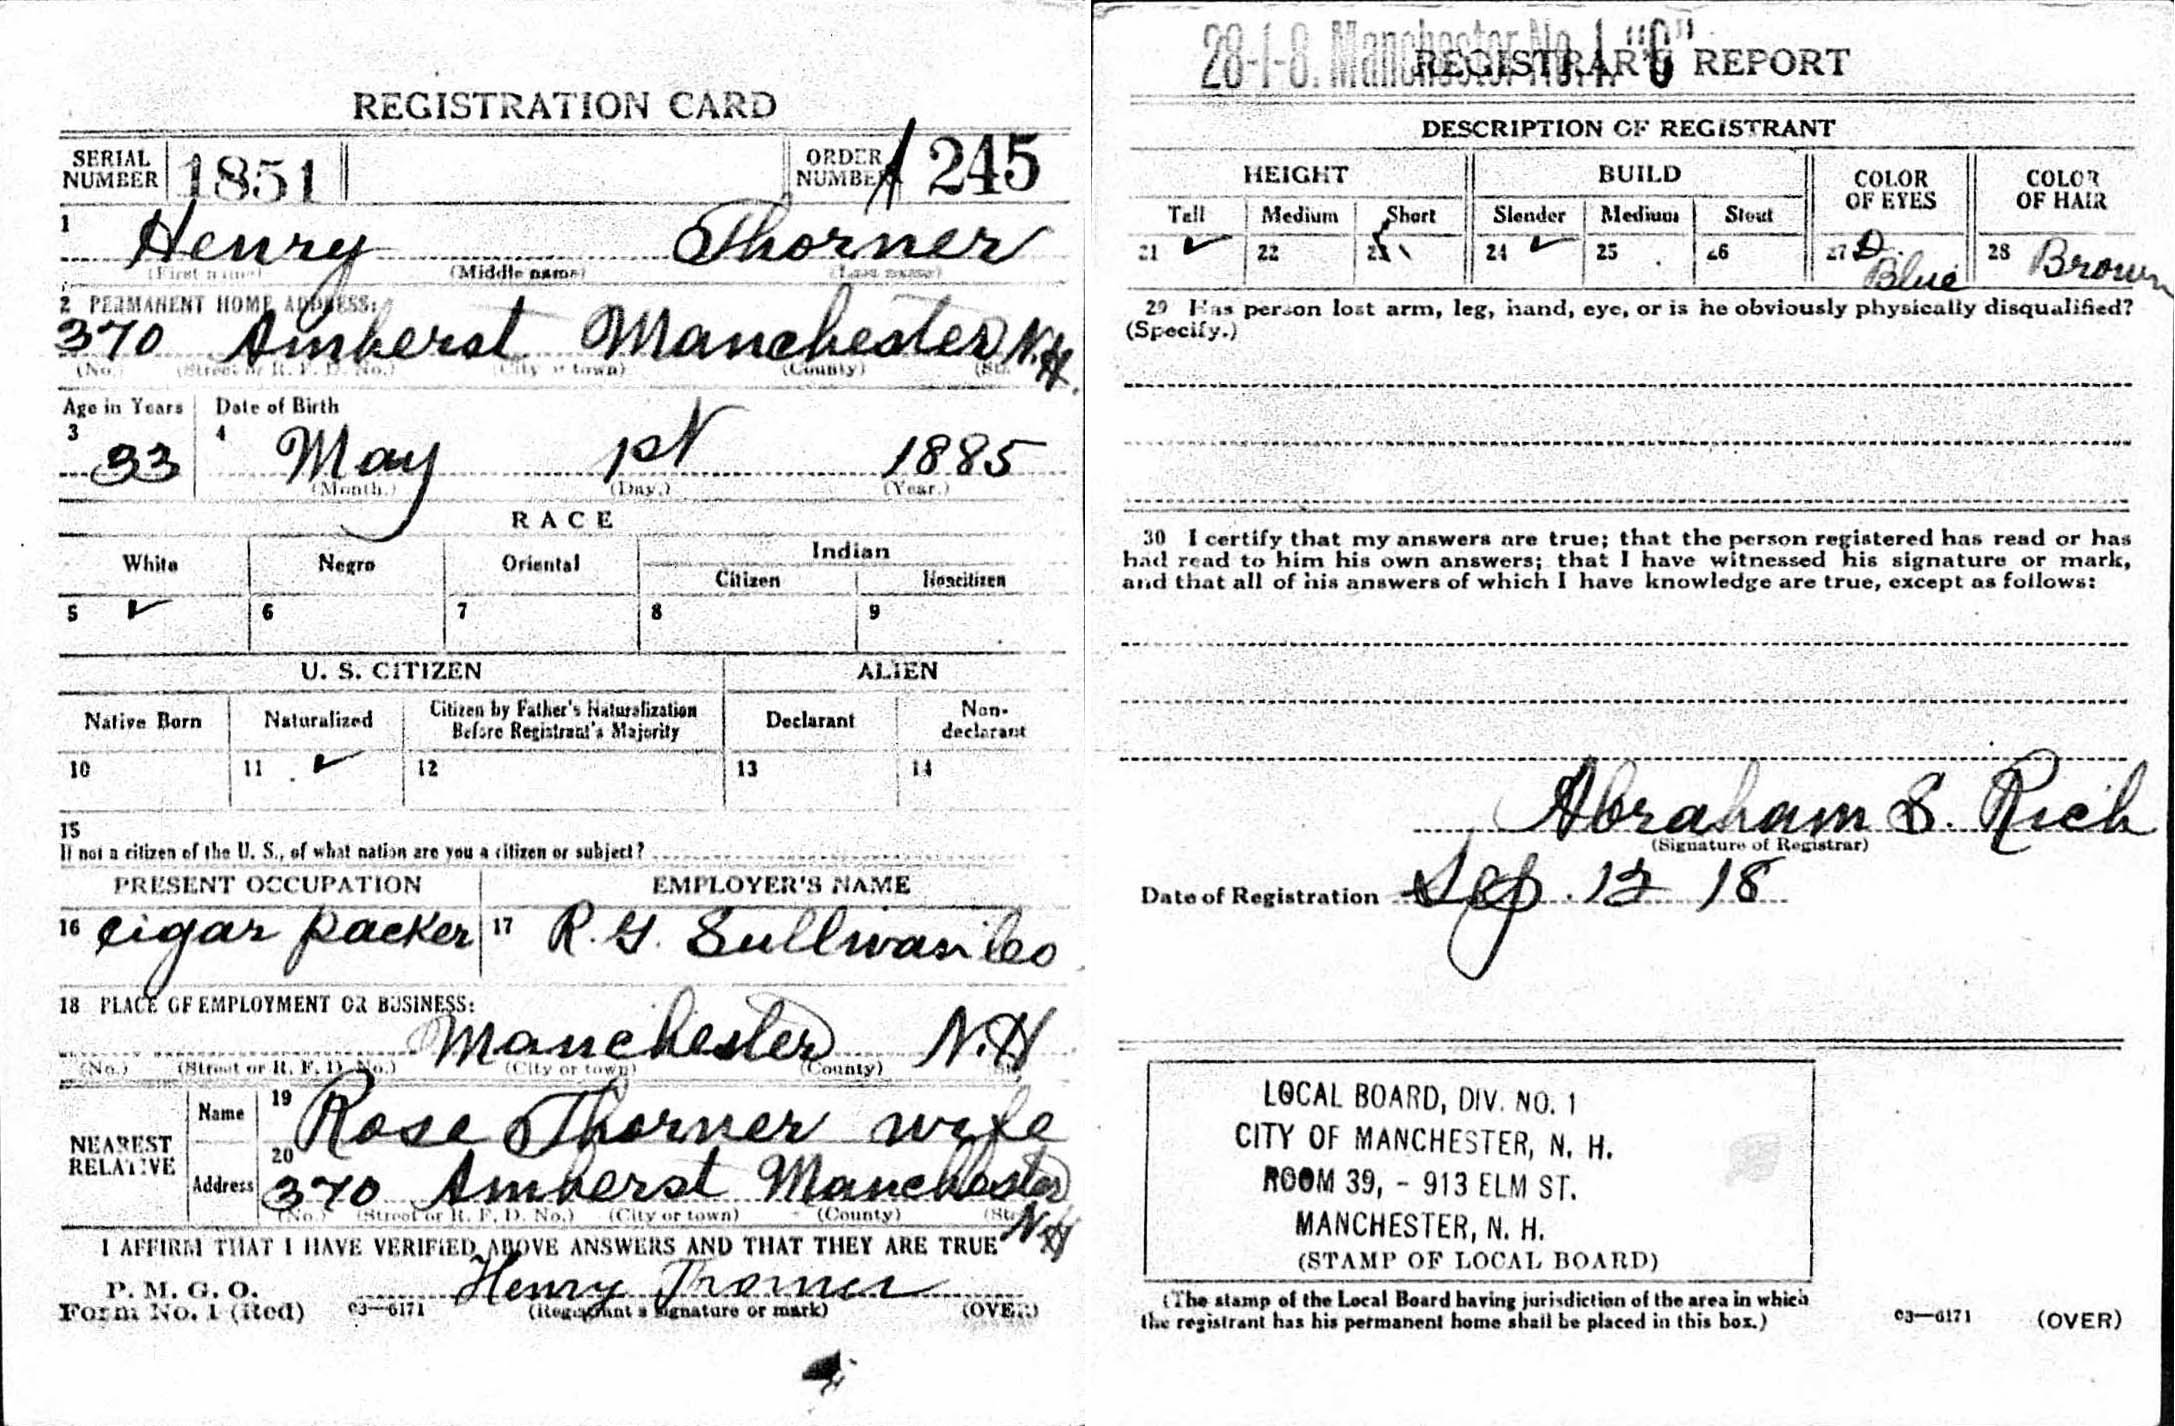 REGISTRATION CARD
SERIAL NUMBER 1851 ORDER NUMBER A 245
1 Henry Thorner
(First name) (Middle name) (Last name)
2 PERMANENT HOME ADDRESS:
370 Amherst Manchester N.H.
(No.) (Street or R. F. D. No.) (City or town) (County)
Age in Years Date of Birth
3 33 4 May 1st 1885
(Month.) (Day.) (Year.)
RACE
White Negro Oriental Indian
Citizen Noncitizen
5 ✓ 6 7 8 9
U. S. CITIZEN ALIEN
Native Born Naturalized Citizen by Father's Naturalization Before Registrant's Majority Declarant Non-declarant
10 11 ✓ 12 13 14
15
If not a citizen of the U. S., of what nation are you a citizen or subject?
PRESENT OCCUPATION EMPLOYER'S NAME
16 cigar packer 17 R. G. Sullivan Co
18 PLACE OF EMPLOYMENT OR BUSINESS:
Manchester N.H
(No.) (Street or R. F. D. No.) (City or town) (County)
NEAREST RELATIVE
Name 19 Rose Thorner wife
Address 20 370 Amherst Manchester N.H
(No.) (Street or R. F. D. No.) (City or town) (County)
I AFFIRM THAT I HAVE VERIFIED ABOVE ANSWERS AND THAT THEY ARE TRUE
P. M. G. O.
Form No. 1 (Red) 03—6171 Henry
(Registrant's signature or mark) (OVER)
28-1-8. Manchester No. 1. "C"
REGISTRAR'S REPORT
DESCRIPTION OF REGISTRANT
HEIGHT BUILD COLOR OF EYES COLOR OF HAIR
Tall Medium Short Slender Medium Stout
21 ✓ 22 23 24 ✓ 25 26 27 D. Blue 28 Brown
29 Has person lost arm, leg, hand, eye, or is he obviously physically disqualified?
(Specify.)
30 I certify that my answers are true; that the person registered has read or has
had read to him his own answers; that I have witnessed his signature or mark,
and that all of his answers of which I have knowledge are true, except as follows:
Abraham S. Rich
(Signature of Registrar)
Date of Registration Sep. 12 18
LOCAL BOARD, DIV. NO. 1
CITY OF MANCHESTER, N. H.
ROOM 39, - 913 ELM ST.
MANCHESTER, N. H.
(STAMP OF LOCAL BOARD)
(The stamp of the Local Board having jurisdiction of the area in which
the registrant has his permanent home shall be placed in this box.)
03—6171 (OVER)